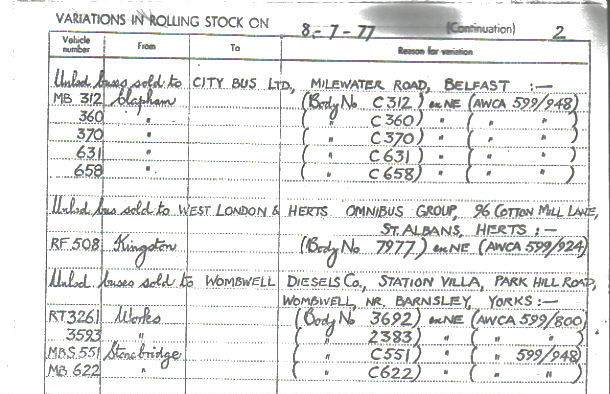 VARIATIONS IN ROLLING STOCK ON 8-7-77 (Continuation) 2
Vehicle number From To Reason for variation
Unlsd buses sold to CITY BUS LTD, MILEWATER ROAD, BELFAST :—
MB 312 Clapham (Body No C312) ex NE (AWCA 599/948)
360 " ( " C360) " ( " " )
370 " ( " C370) " ( " " )
631 " ( " C631) " ( " " )
658 " ( " C658) " ( " " )
Unlsd bus sold to WEST LONDON & HERTS OMNIBUS GROUP, 96 COTTON MILL LANE,
ST. ALBANS, HERTS :—
RF 508 Kingston (Body No 7977) ex NE (AWCA 599/924)
Unlsd buses sold to WOMBWELL DIESELS Co., STATION VILLA, PARK HILL ROAD,
WOMBWELL, NR. BARNSLEY, YORKS :—
RT3261 Works (Body No 3692) ex NE (AWCA 599/800)
3593 " ( " 2383) " ( " " )
MBS 551 Stonebridge ( " C551) " ( " 599/948)
MB 622 " ( " C622) " ( " " )